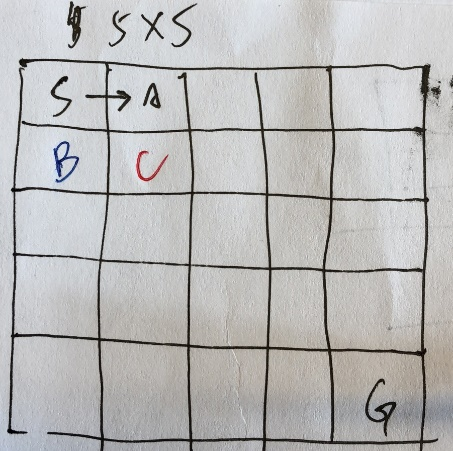 5X5
S → A
B C
G